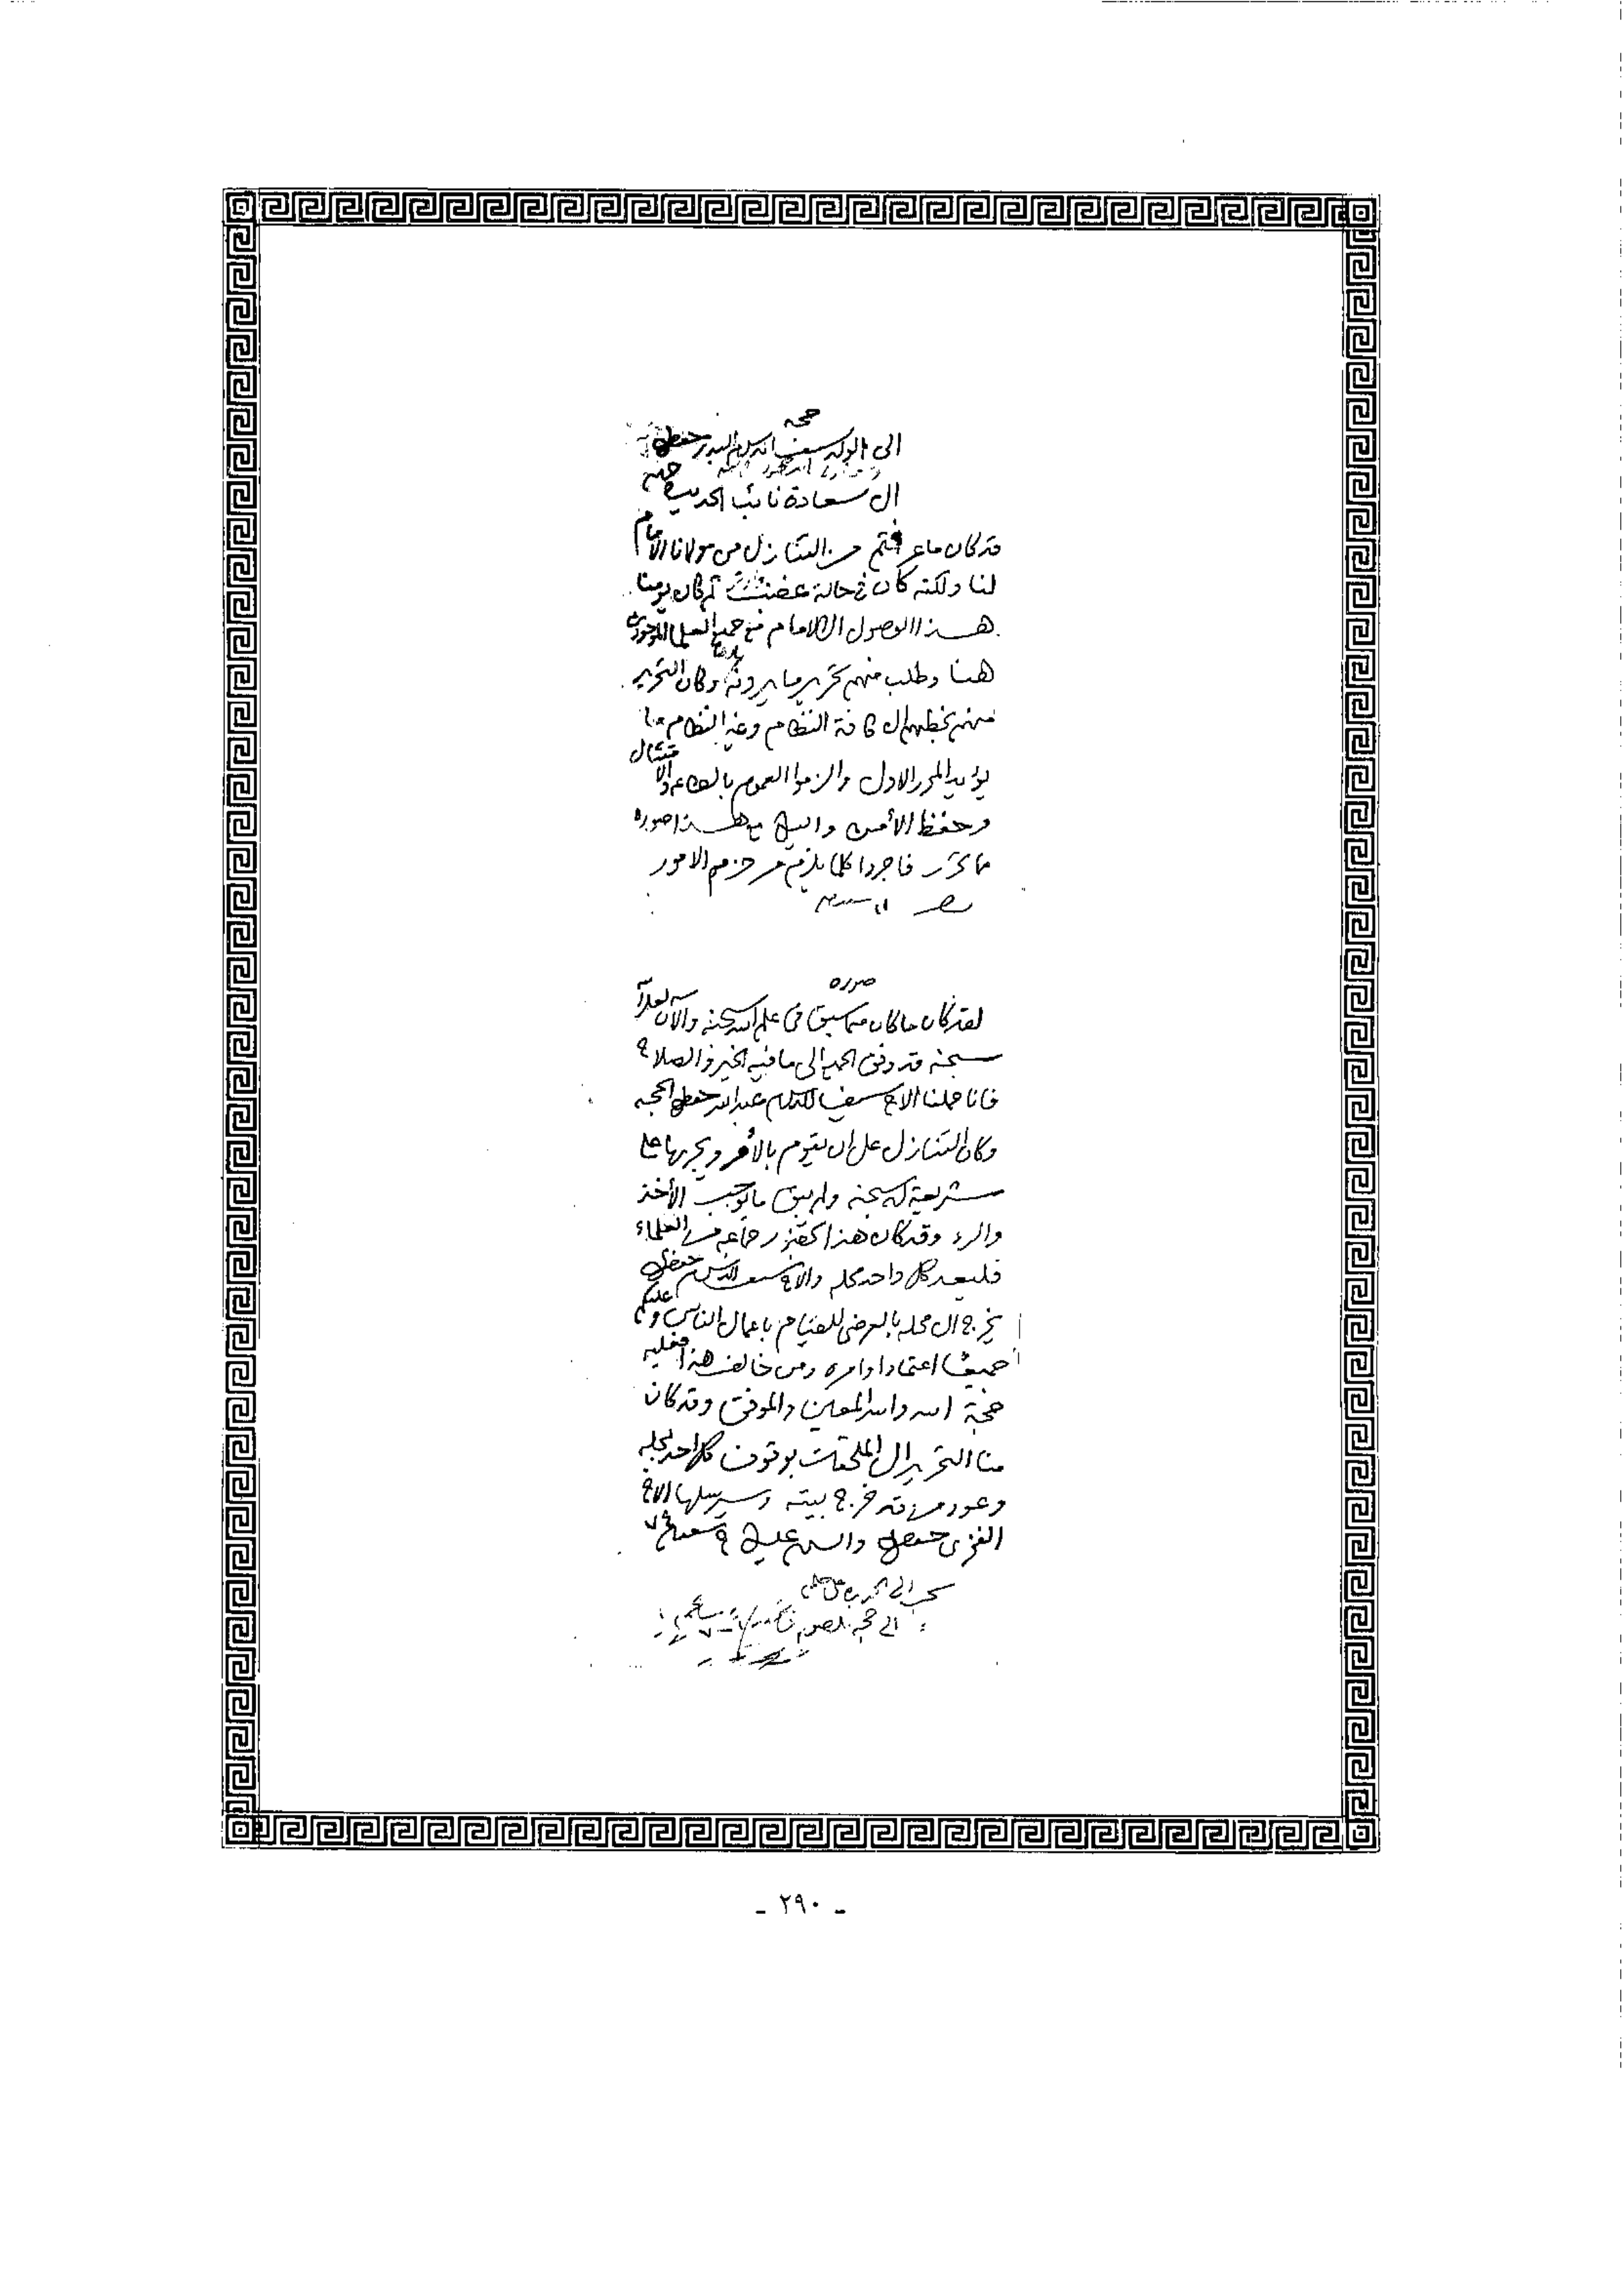 حجه
الى الولد سيف الاسلام البدر حفظه
الى سعادة نائب الحديده
قد كان ما عرفتم من التنازل من مولانا الامام
لنا ولكنه كان في حالة غضب ثم كان يومنا
هذا الوصول الى الامام مع جميع العلماء الموجودين
هنا وطلب منهم تحرير ما يرونه وكان التحرير
منهم بخطهم الى كافة النظام وغير النظام بما
يؤيد المحرر الاول والزموا العموم بالطاعة والامتثال
وحفظ الأمن واليكم مع هذا صورة
ما تحرر فاجروا كلما يلزم من حزم الامور
صوره
لقد كان ما كان مما سبق في علم الله سبحانه والآن لعل الله
سبحانه قد وفق الجميع الى ما فيه الخير والصلاح
فانا جعلنا الاخ سيف الاسلام عبدالله حفظه الله الحجه
وكان التنازل على ان يقوم بالأمر ويجريها على
شريعة الله سبحانه ولم يبق ما يوجب الأخذ
والرد وقد كان هذا بحضور جماعه من العلماء
فليعد كل واحد محله والاخ سيف الاسلام حفظه الله
يخرج الى محله بالعرضي للقيام باعمال الناس وعليكم
جميعاً اعتماد اوامره ومن خالف هذا فعليه
حجة الله والله المعين والموفق وقد كان
منا التحرير الى الملحقات بوقوف كل احد بمحله
وعود من قد خرج بيته وسيرسلها الاخ
العزي حفظه الله والسلام عليكم
- ٢٩٠ -